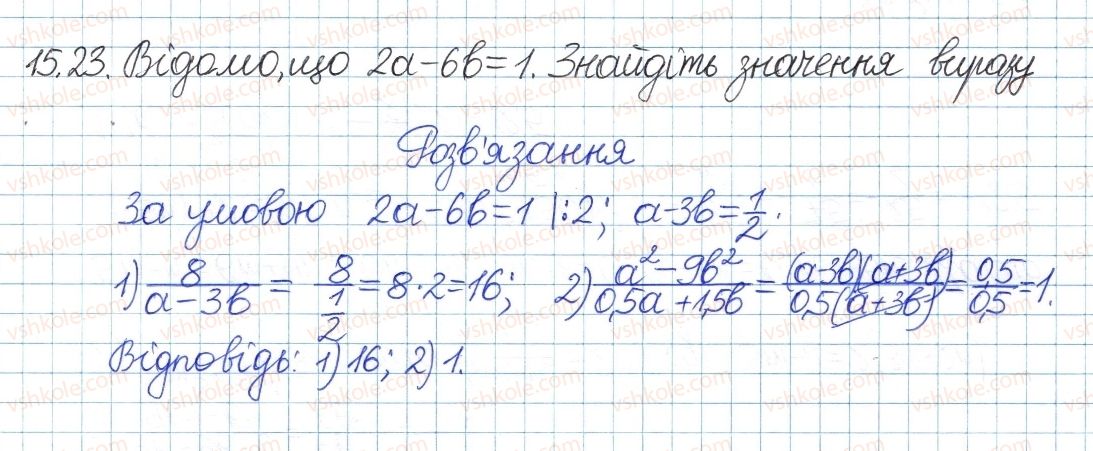 15.23. Відомо, що 2a-6b=1. Знайдіть значення виразу
Розв'язання
За умовою 2a-6b=1 |:2; a-3b=1/2.
1) 8/(a-3b) = 8/(1/2) = 8·2=16; 2) (a²-9b²)/(0,5a+1,5b) = (a-3b)(a+3b)/0,5(a+3b) = 0,5/0,5 = 1.
Відповідь: 1) 16; 2) 1.